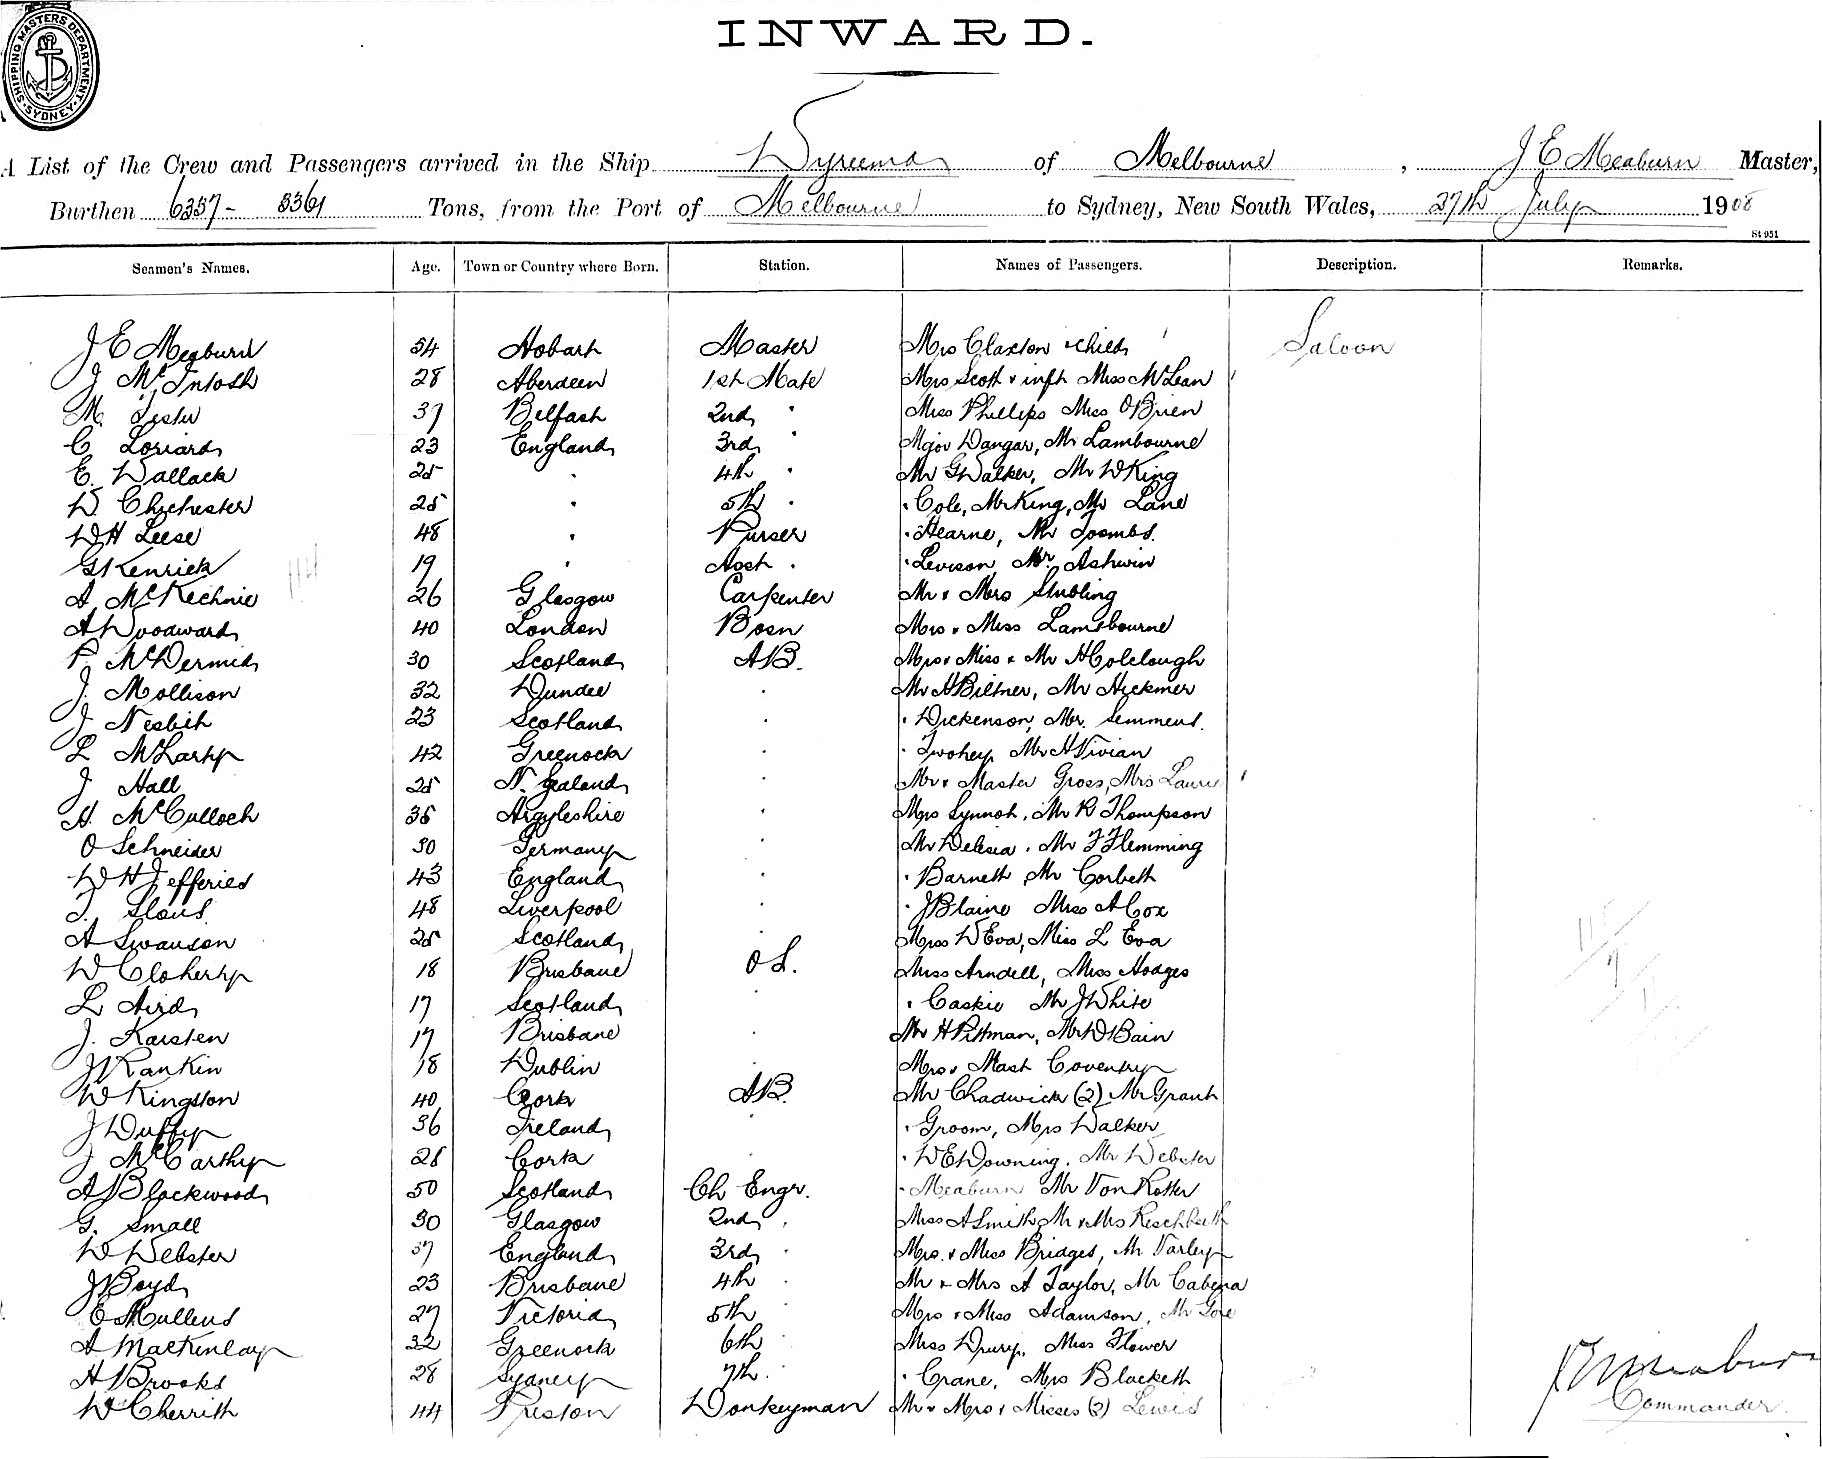 SHIPPING MASTERS DEPARTMENT. SYDNEY.
INWARD.
A List of the Crew and Passengers arrived in the Ship Wyreema of Melbourne, J E Meaburn Master,
Burthen 6357 - 3361 Tons, from the Port of Melbourne to Sydney, New South Wales, 27th July 1908
St 951
Seamen's Names. Age. Town or Country where Born. Station. Names of Passengers. Description. Remarks.
J E Meaburn 54 Hobart Master Mrs Claxton & child Saloon
J McIntosh 28 Aberdeen 1st Mate Mrs Scott & inft Miss McLean
M Lester 37 Belfast 2nd " Miss Phillips Miss O'Brien
C Loriard 23 England 3rd " Major Dangar, Mr Lambourne
E. Wallack 25 " 4th " Mr G Walker, Mr W King
W Chichester 25 " 5th " " Cole, Mr King, Mr Lane
W H Leese 48 " Purser " Hearne, Mr Toombs.
G Kenrick 19 " Asst " " Levison, Mr Ashwin
A McKechnie 26 Glasgow Carpenter Mr & Mrs Stubling
A Woodward 40 London Bosn Mrs & Miss Lambourne
P. McDermid 30 Scotland AB. Mrs & Miss & Mr H Colclough
J. Mollison 32 Dundee " Mr H Biltner, Mr Hickmer
J Nesbit 23 Scotland " " Dickenson, Mr. Semmens.
L McLarty 42 Greenock " " Twohey Mr H Vivian
J Hall 25 N. Zealand " Mr & Master Gross, Mrs Laurie
A. McCulloch 35 Argyleshire " Mrs Synnot, Mr R Thompson
O Schneider 30 Germany " Mr Delesia, Mr F Flemming
W H Jefferies 43 England " " Barnett, Mr Corbett
T. Slous 48 Liverpool " " J Blaine Miss A Cox
A Swanson 25 Scotland " Mrs W Eva, Miss L Eva
W Cloherty 18 Brisbane O S. Miss Arndell, Miss Hodges
L Aird 17 Scotland " " Caskie Mr J White
J. Karsten 17 Brisbane " Mr H Pittman, Mr W Bain
J Rankin 18 Dublin " Mrs & Mast Coventry
W Kingston 40 Cork AB. Mr Chadwick (2) Mr Grant
J Duffy 36 Ireland " " Groom, Mrs Walker
J McCarthy 28 Cork " " W E Downing, Mr Webster
A Blackwood 50 Scotland Ch Engr. " Meaburn Mr Von Rotter
G. Small 30 Glasgow 2nd " Miss A Smith Mr & Mrs
W Webster 37 England 3rd " Mrs. & Miss Bridges, Mr Varley
J Boyd 23 Brisbane 4th " Mr & Mrs A Taylor, Mr Cabena
E Mullens 27 Victoria 5th " Mrs & Miss Adamson, Mr Gore
A MacKinlay 32 Greenock 6th " Miss Drury, Miss Flower
H Brooks 28 Sydney 7th " " Crane, Mrs Blackett
W Cherrith 44 Preston Donkeyman Mr & Mrs & Misses (2) Lewis
J E Meaburn
Commander.